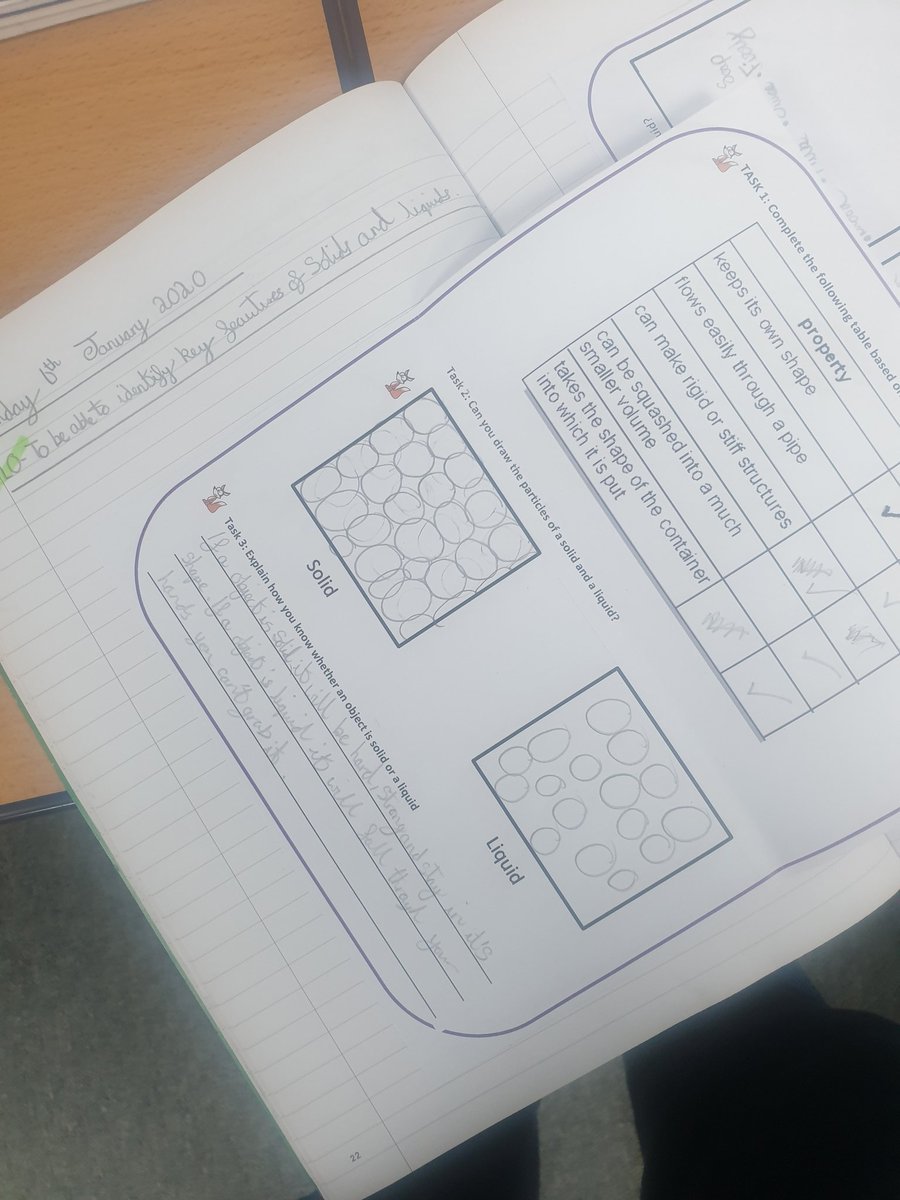 6th January 2020
LO To be able to identify key feautures of Solids and liquids.
TASK 1: Complete the following table based on
property
keeps its own shape
flows easily through a pipe
can make rigid or stiff structures
can be squashed into a much
smaller volume
takes the shape of the container
into which it is put
Task 2: Can you draw the particles of a solid and a liquid?
Solid
Liquid
Task 3: Explain how you know whether an object is solid or a liquid
If a object is solid it will be hard, strong and stay in it's
shape if a object is liquid it will fall throgh your
hands you can't grab it.
22
Soap